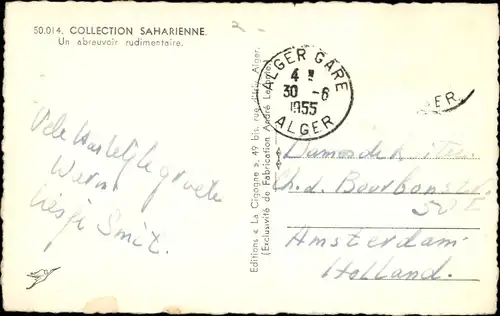 50.014. COLLECTION SAHARIENNE.
Un abreuvoir rudimentaire.
Vele hartelijke groeten
Liesje Smit.
Editions « La Cigogne », 49 bis, rue d'Isly, Alger.
(Exclusivité de Fabrication André Leconte)
ALGER GARE
4
30 -6
1955
ALGER
GER.
Ch. d. Bourbonstr.
50 I
Amsterdam
Holland.